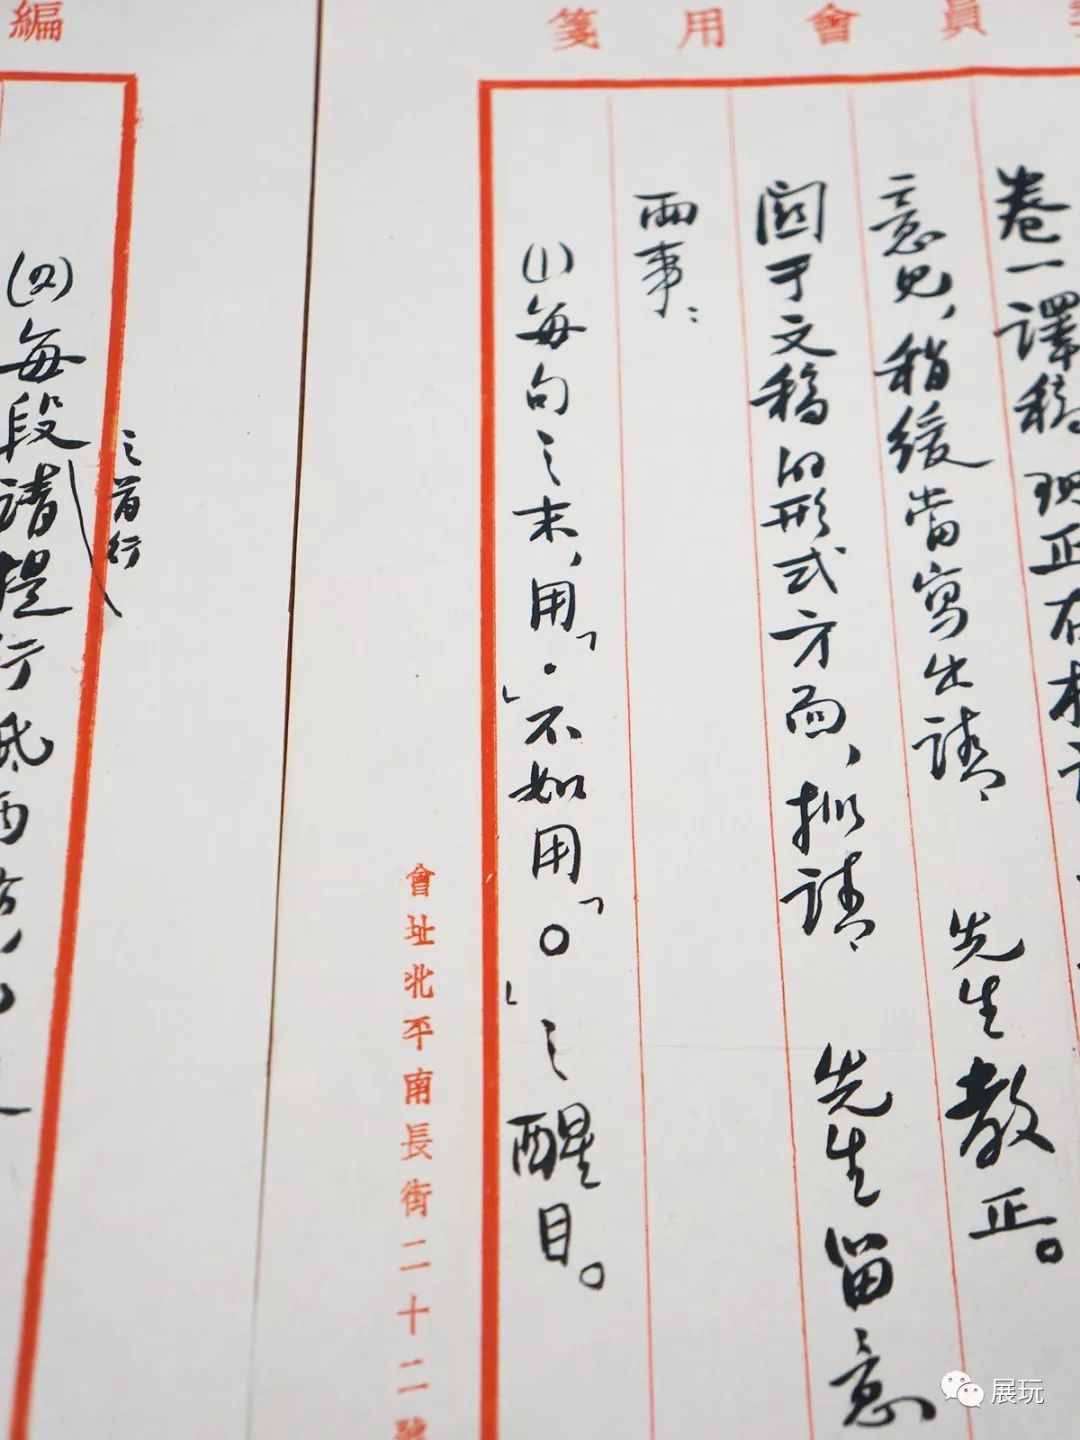 箋用會員
卷一譯稿現正在校
意見，稍緩當寫出請 先生教正。
關于文稿的形式方面，擬請 先生留意
兩事：
(1)每句之末，用「·」不如用「。」之醒目。
會址北平南長街二十二號
編
之首行
(四)每段請提行低兩
展玩